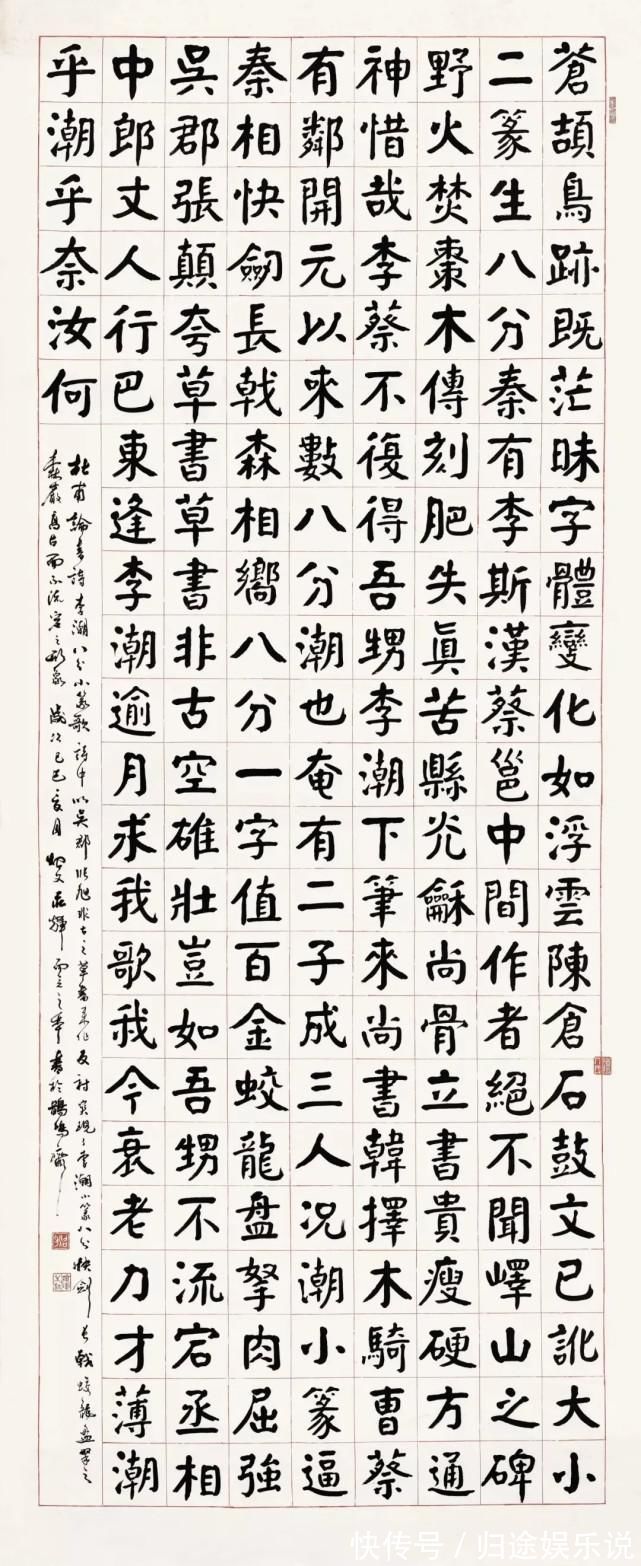 蒼頡鳥跡既茫昧字體變化如浮雲陳倉石鼓文已訛大小
二篆生八分秦有李斯漢蔡邕中間作者絕不聞嶧山之碑
野火焚棗木傳刻肥失眞苦縣光龢尚骨立書貴瘦硬方通
神惜哉李蔡不復得吾甥李潮下筆來尚書韓擇木騎曹蔡
有鄰開元以來數八分潮也奄有二子成三人況潮小篆逼
秦相快劒長戟森相嚮八分一字值百金蛟龍盤拏肉屈強
吳郡張顛夸草書草書非古空雄壯豈如吾甥不流宕丞相
中郎丈人行巴東逢李潮逾月求我歌我今衰老力才薄潮
乎潮乎奈汝何
杜甫論書詩李潮八分小篆歌詩中以吳郡張旭非古之草書來作反衬潮小篆八分快劍長戟蛟龍盤拏之
森嚴高古而不流宕之形象歲次己巳
快传号/归途娱乐说